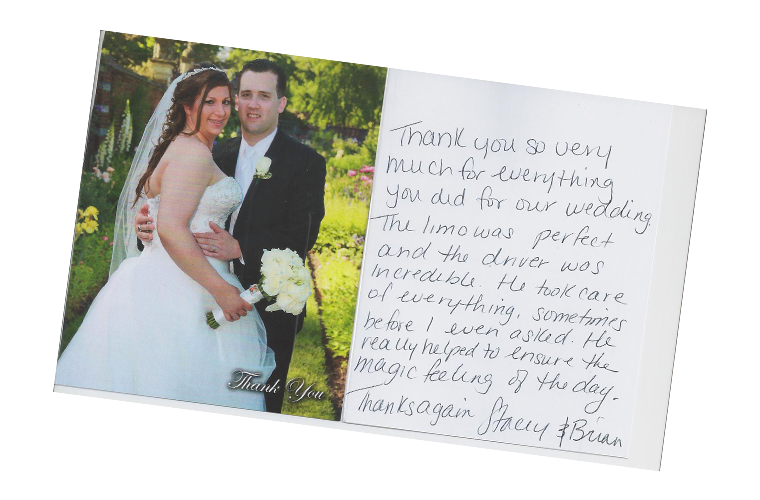 Thank You
Thank you so very
much for everything
you did for our wedding.
The limo was perfect
and the driver was
incredible. He took care
of everything, sometimes
before I even asked. He
really helped to ensure the
magic feeling of the day.
Thanks again Stacey & Brian